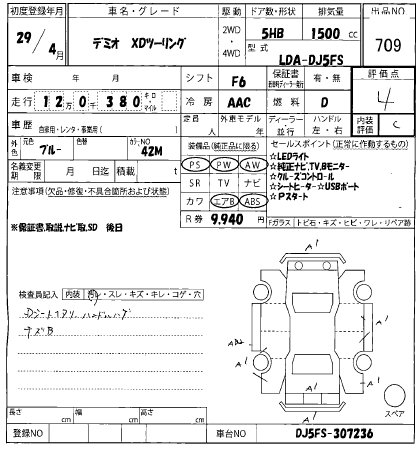 初度登録年月 車名・グレード 駆動 ドア数・形状 排気量 出品NO
29/4月 デミオ XDツーリング 2WD・4WD 5HB 1500cc 709
型式 LDA-DJ5FS
車検 年 月 シフト F6 保証書 有・無 評価点
走行 12万0千380 キロ・マイル 冷房 AAC 燃料 D 4
車歴 自家用・レンタ・事業用( ) 定員 人 外車モデル 年 ディーラー・並行 ハンドル 左・右 内装評価 C
外色 元色 ブルー 色替 カラーNO 42M 装備品(純正品に限る) セールスポイント(正常に作動するもの)
名義変更期限 月 日迄 積載 t PS PW AW ☆LEDライト
注意事項(欠品・修復・不具合箇所および状態) SR TV ナビ ☆純正ナビ,TV,Bモニター
☆クルーズコントロール
カワ エアB ABS ☆シートヒーター☆USBポート
☆Pスタート
R券 9.940 円 Fガラス トビ石・キズ・ヒビ・ワレ・リペア跡
※保証書,取説,ナビ取,SD 後日
検査員記入 内装 汚レ・スレ・キズ・キレ・コゲ・穴
A1
A1
A1
A1
A1
スペア
長さ cm 幅 cm 高さ cm
登録NO 車台NO DJ5FS-307236